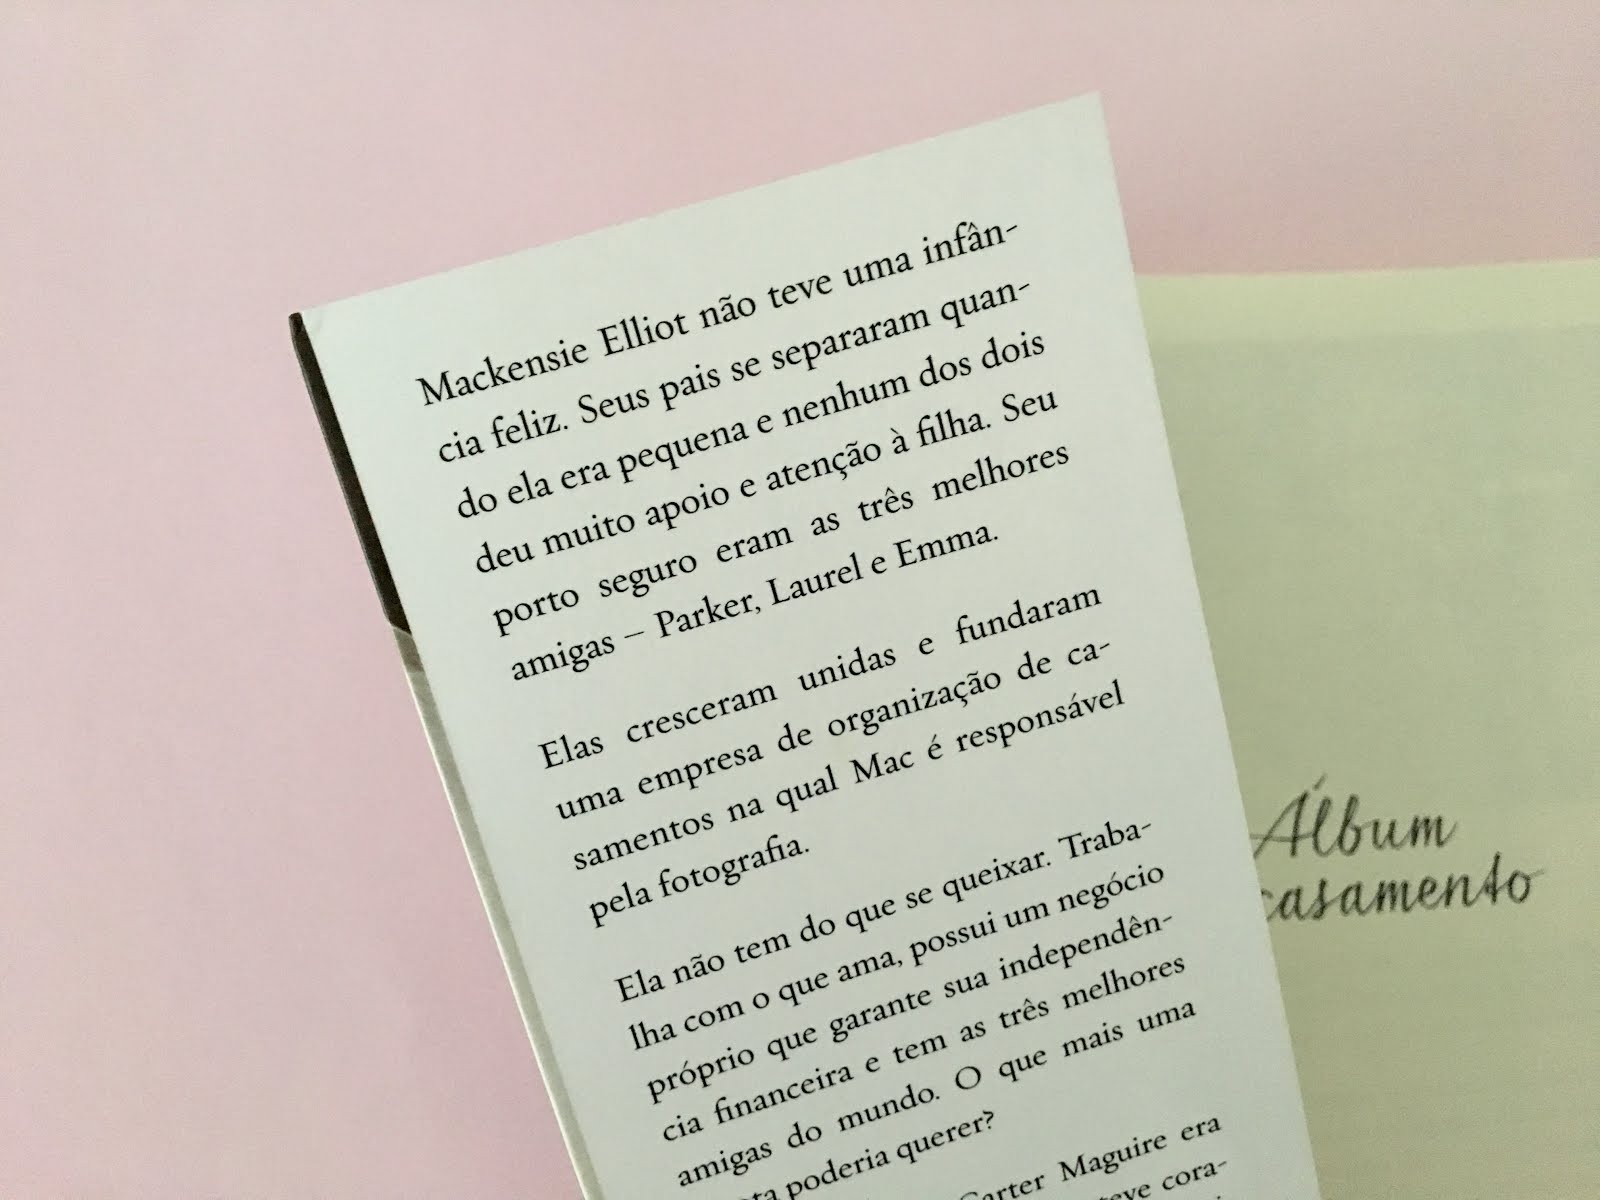 Mackensie Elliot não teve uma infân-
cia feliz. Seus pais se separaram quan-
do ela era pequena e nenhum dos dois
deu muito apoio e atenção à filha. Seu
porto seguro eram as três melhores
amigas – Parker, Laurel e Emma.
Elas cresceram unidas e fundaram
uma empresa de organização de ca-
samentos na qual Mac é responsável
pela fotografia.
Ela não tem do que se queixar. Traba-
lha com o que ama, possui um negócio
próprio que garante sua independên-
cia financeira e tem as três melhores
amigas do mundo. O que mais uma
poderia querer?
Maguire era
cora-
Álbum
casamento